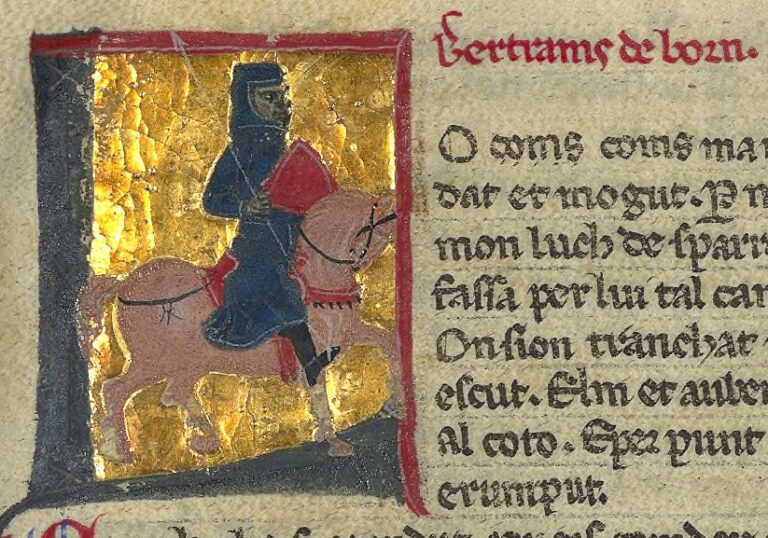 Bertrams de born.
O coms coms man
dat et mogut. P
mon luch de sparr
fassa per lui tal can
On sion tranchat
escut. Elm et auber
al coto. E per punt
erumput.